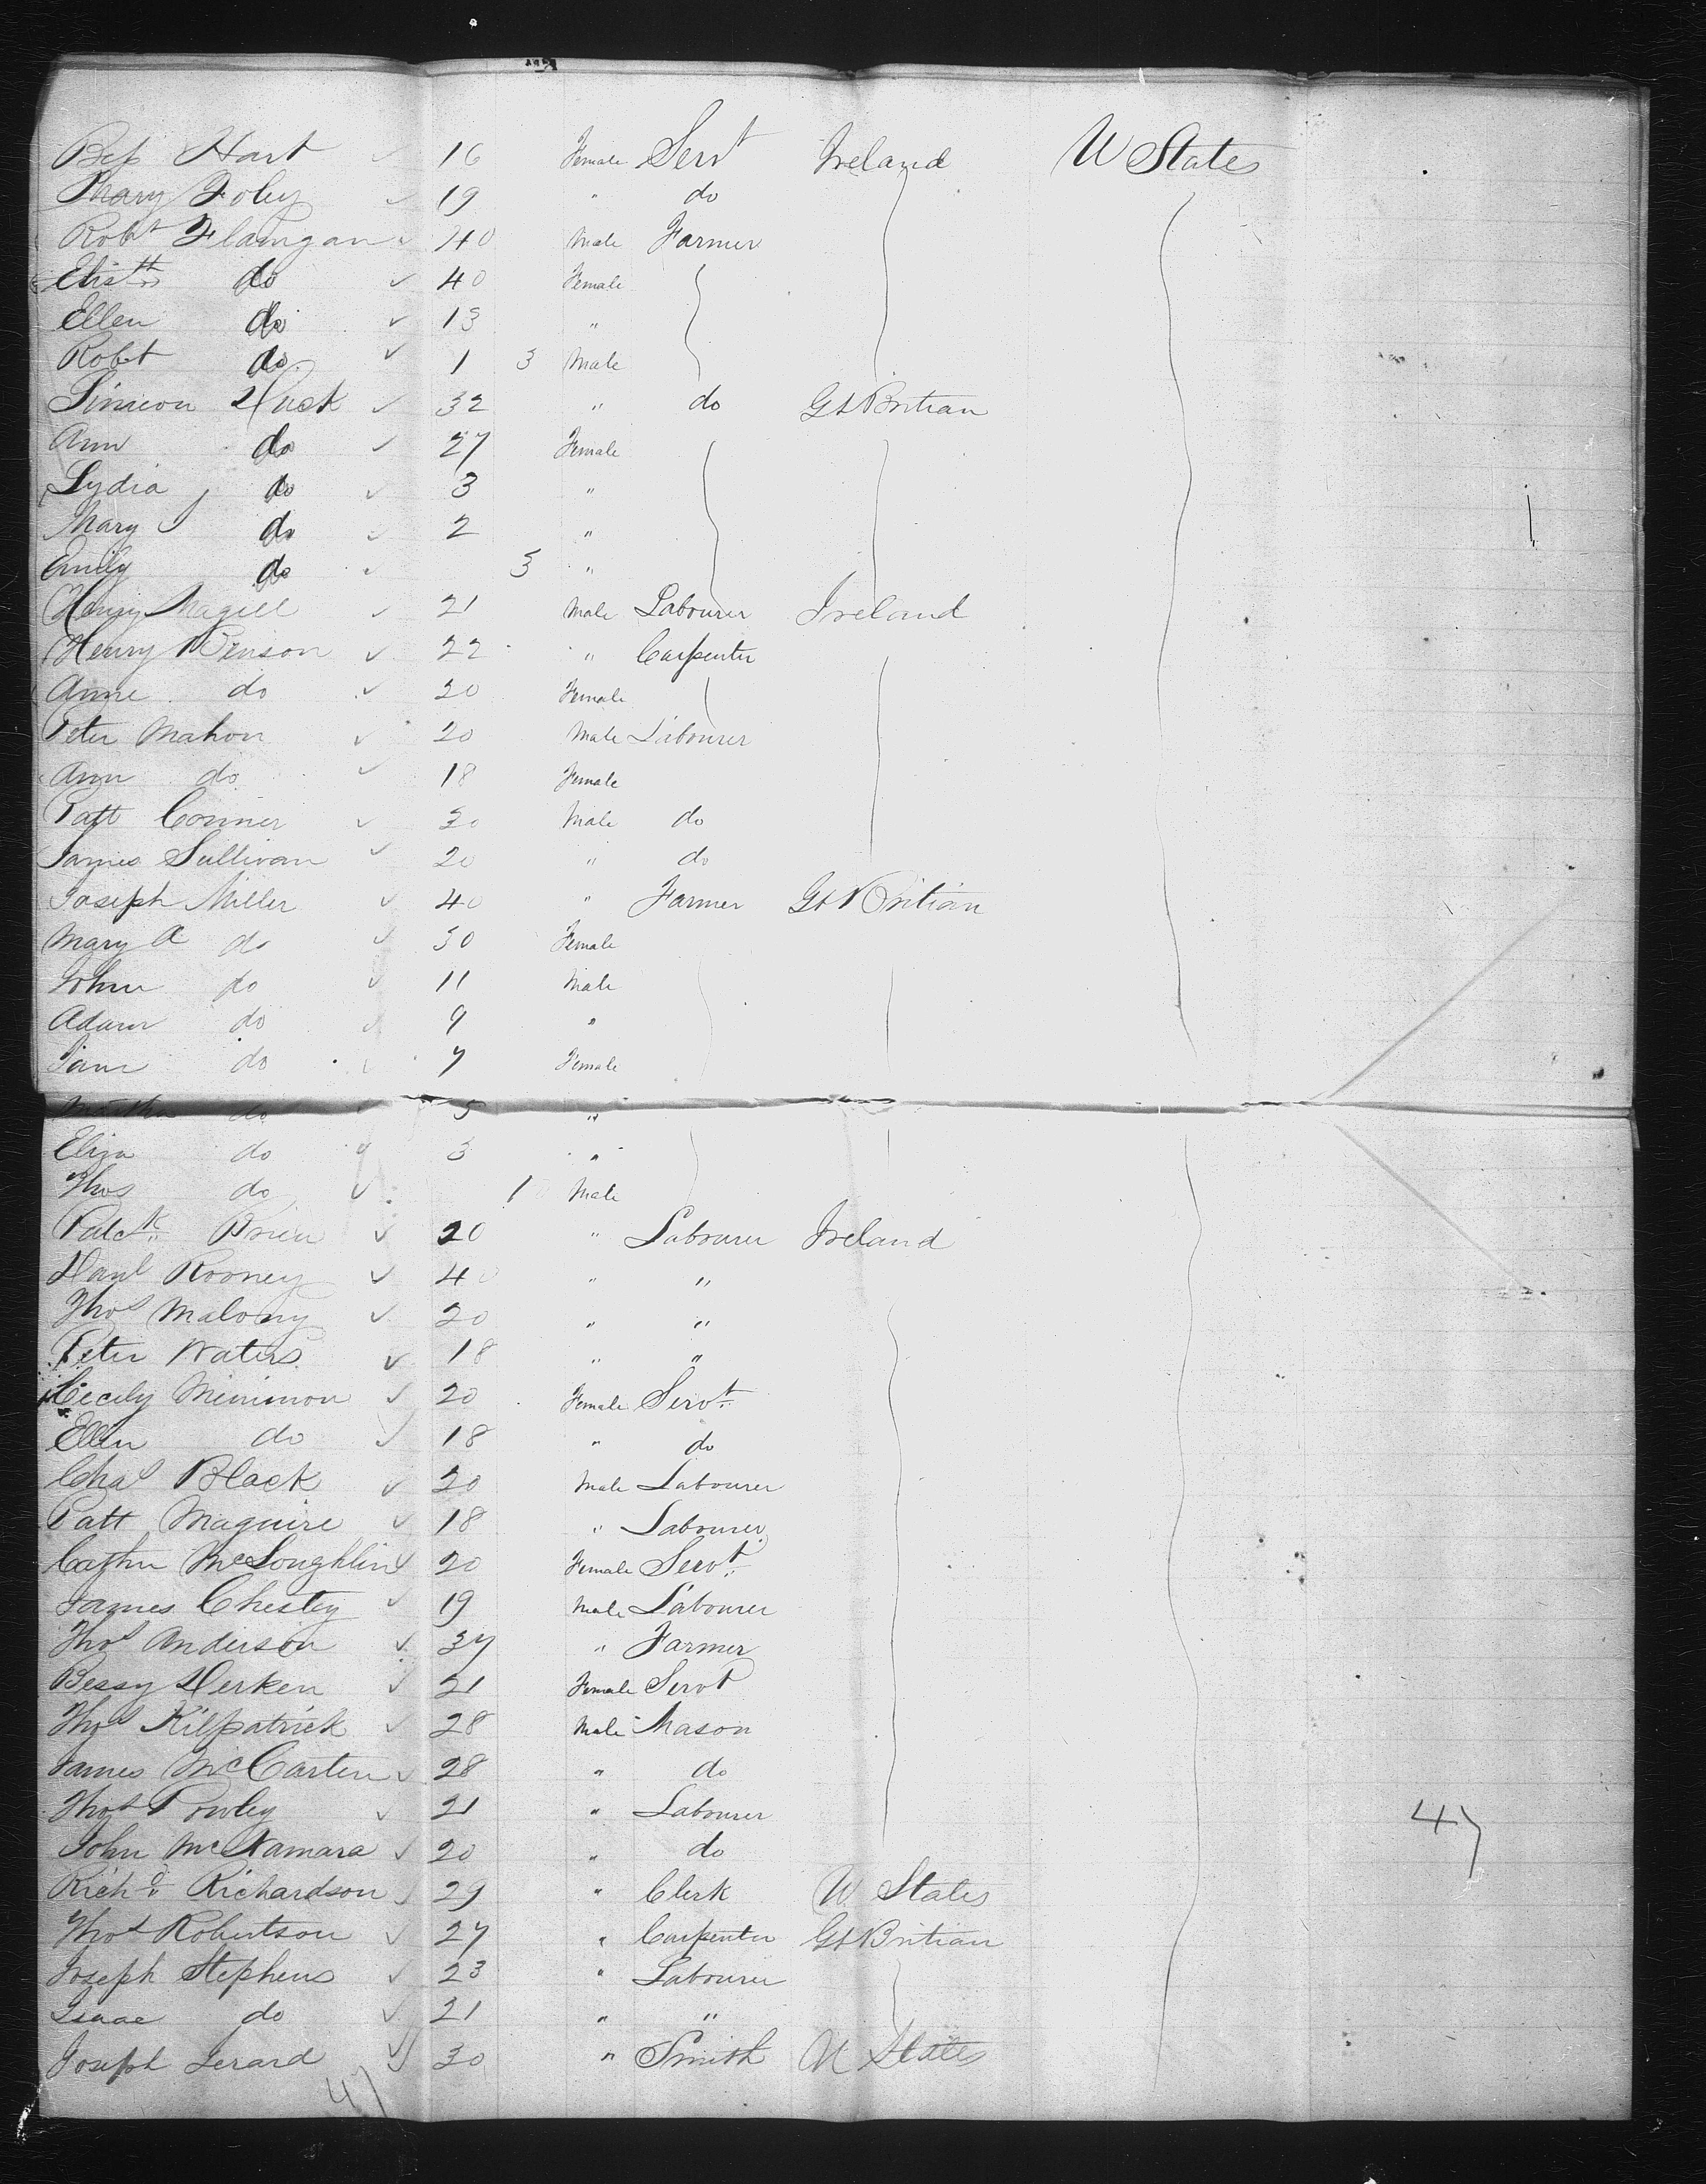 Bess Hart 16 Female Servt Ireland U States
Mary Foley 19 " do
Robt Flanigan 40 Male Farmer
Elisth do 40 Female
Ellen do 13 "
Robt do 1 3 Male
Simeon Husk 32 " do Gt Britian
Ann do 27 Female
Lydia do 3 "
Mary do 2 "
Emily do 3 "
Henry Magill 21 Male Labourer Ireland
Henry Benson 22 " Carpenter
Anne do 20 Female
Peter Mahon 20 Male Labourer
Ann do 18 Female
Patt Conner 30 Male do
James Sullivan 20 " do
Joseph Miller 40 " Farmer Gt Britian
Mary A do 30 Female
John do 11 Male
Adam do 9 "
Jane do 7 Female
Martha do 5 "
Eliza do 3 "
Thos do 1 Male
Patck Brien 20 " Labourer Ireland
Danl Rooney 40 " "
Thos Malony 20 " "
Peter Waters 18 " "
Cecily 20 Female Servt
Ellen do 18 " do
Chas Black 20 Male Labourer
Patt Maguire 18 " Labourer
Cathn McLoughlin 20 Female Servt
James Chesty 19 Male Labourer
Thos Anderson 37 " Farmer
Bessy Derken 21 Female Servt
Thos Kilpatrick 28 Male Mason
James McCarten 28 " do
Thos Powley 21 " Labourer
John McNamara 20 " do
47
Richd Richardson 29 " Clerk U States
Thos Robertson 27 " Carpenter Gt Britian
Joseph Stephens 23 " Labourer
Isaac do 21 " "
Joseph Lerard 30 " Smith U States
47